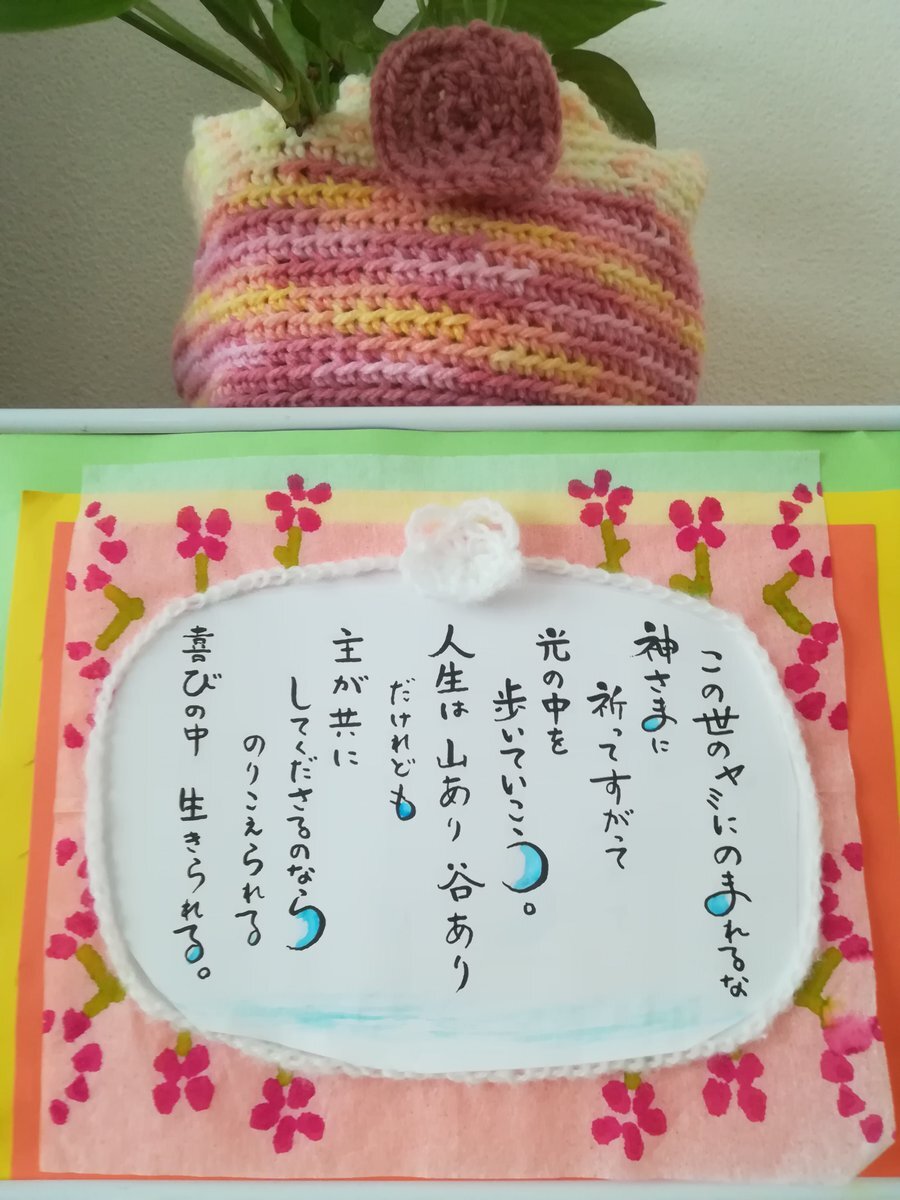 この世のヤミにのまれるな
神さまに
祈ってすがって
光の中を
歩いていこう。
人生は 山あり 谷あり
だけれども
主が共に
してくださるのなら
のりこえられる
喜びの中 生きられる。